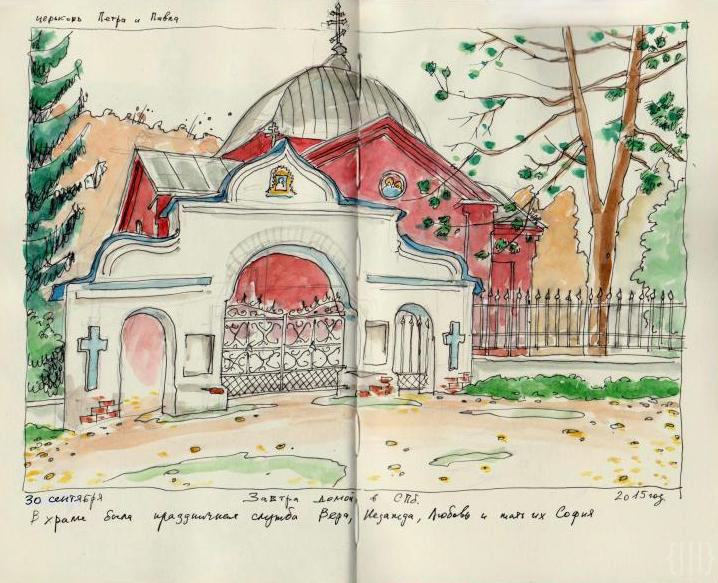 церковь Петра и Павла
30 сентября Завтра домой в СПб. 2015год
В храме была праздничная служба Вера, Надежда, Любовь и мать их София